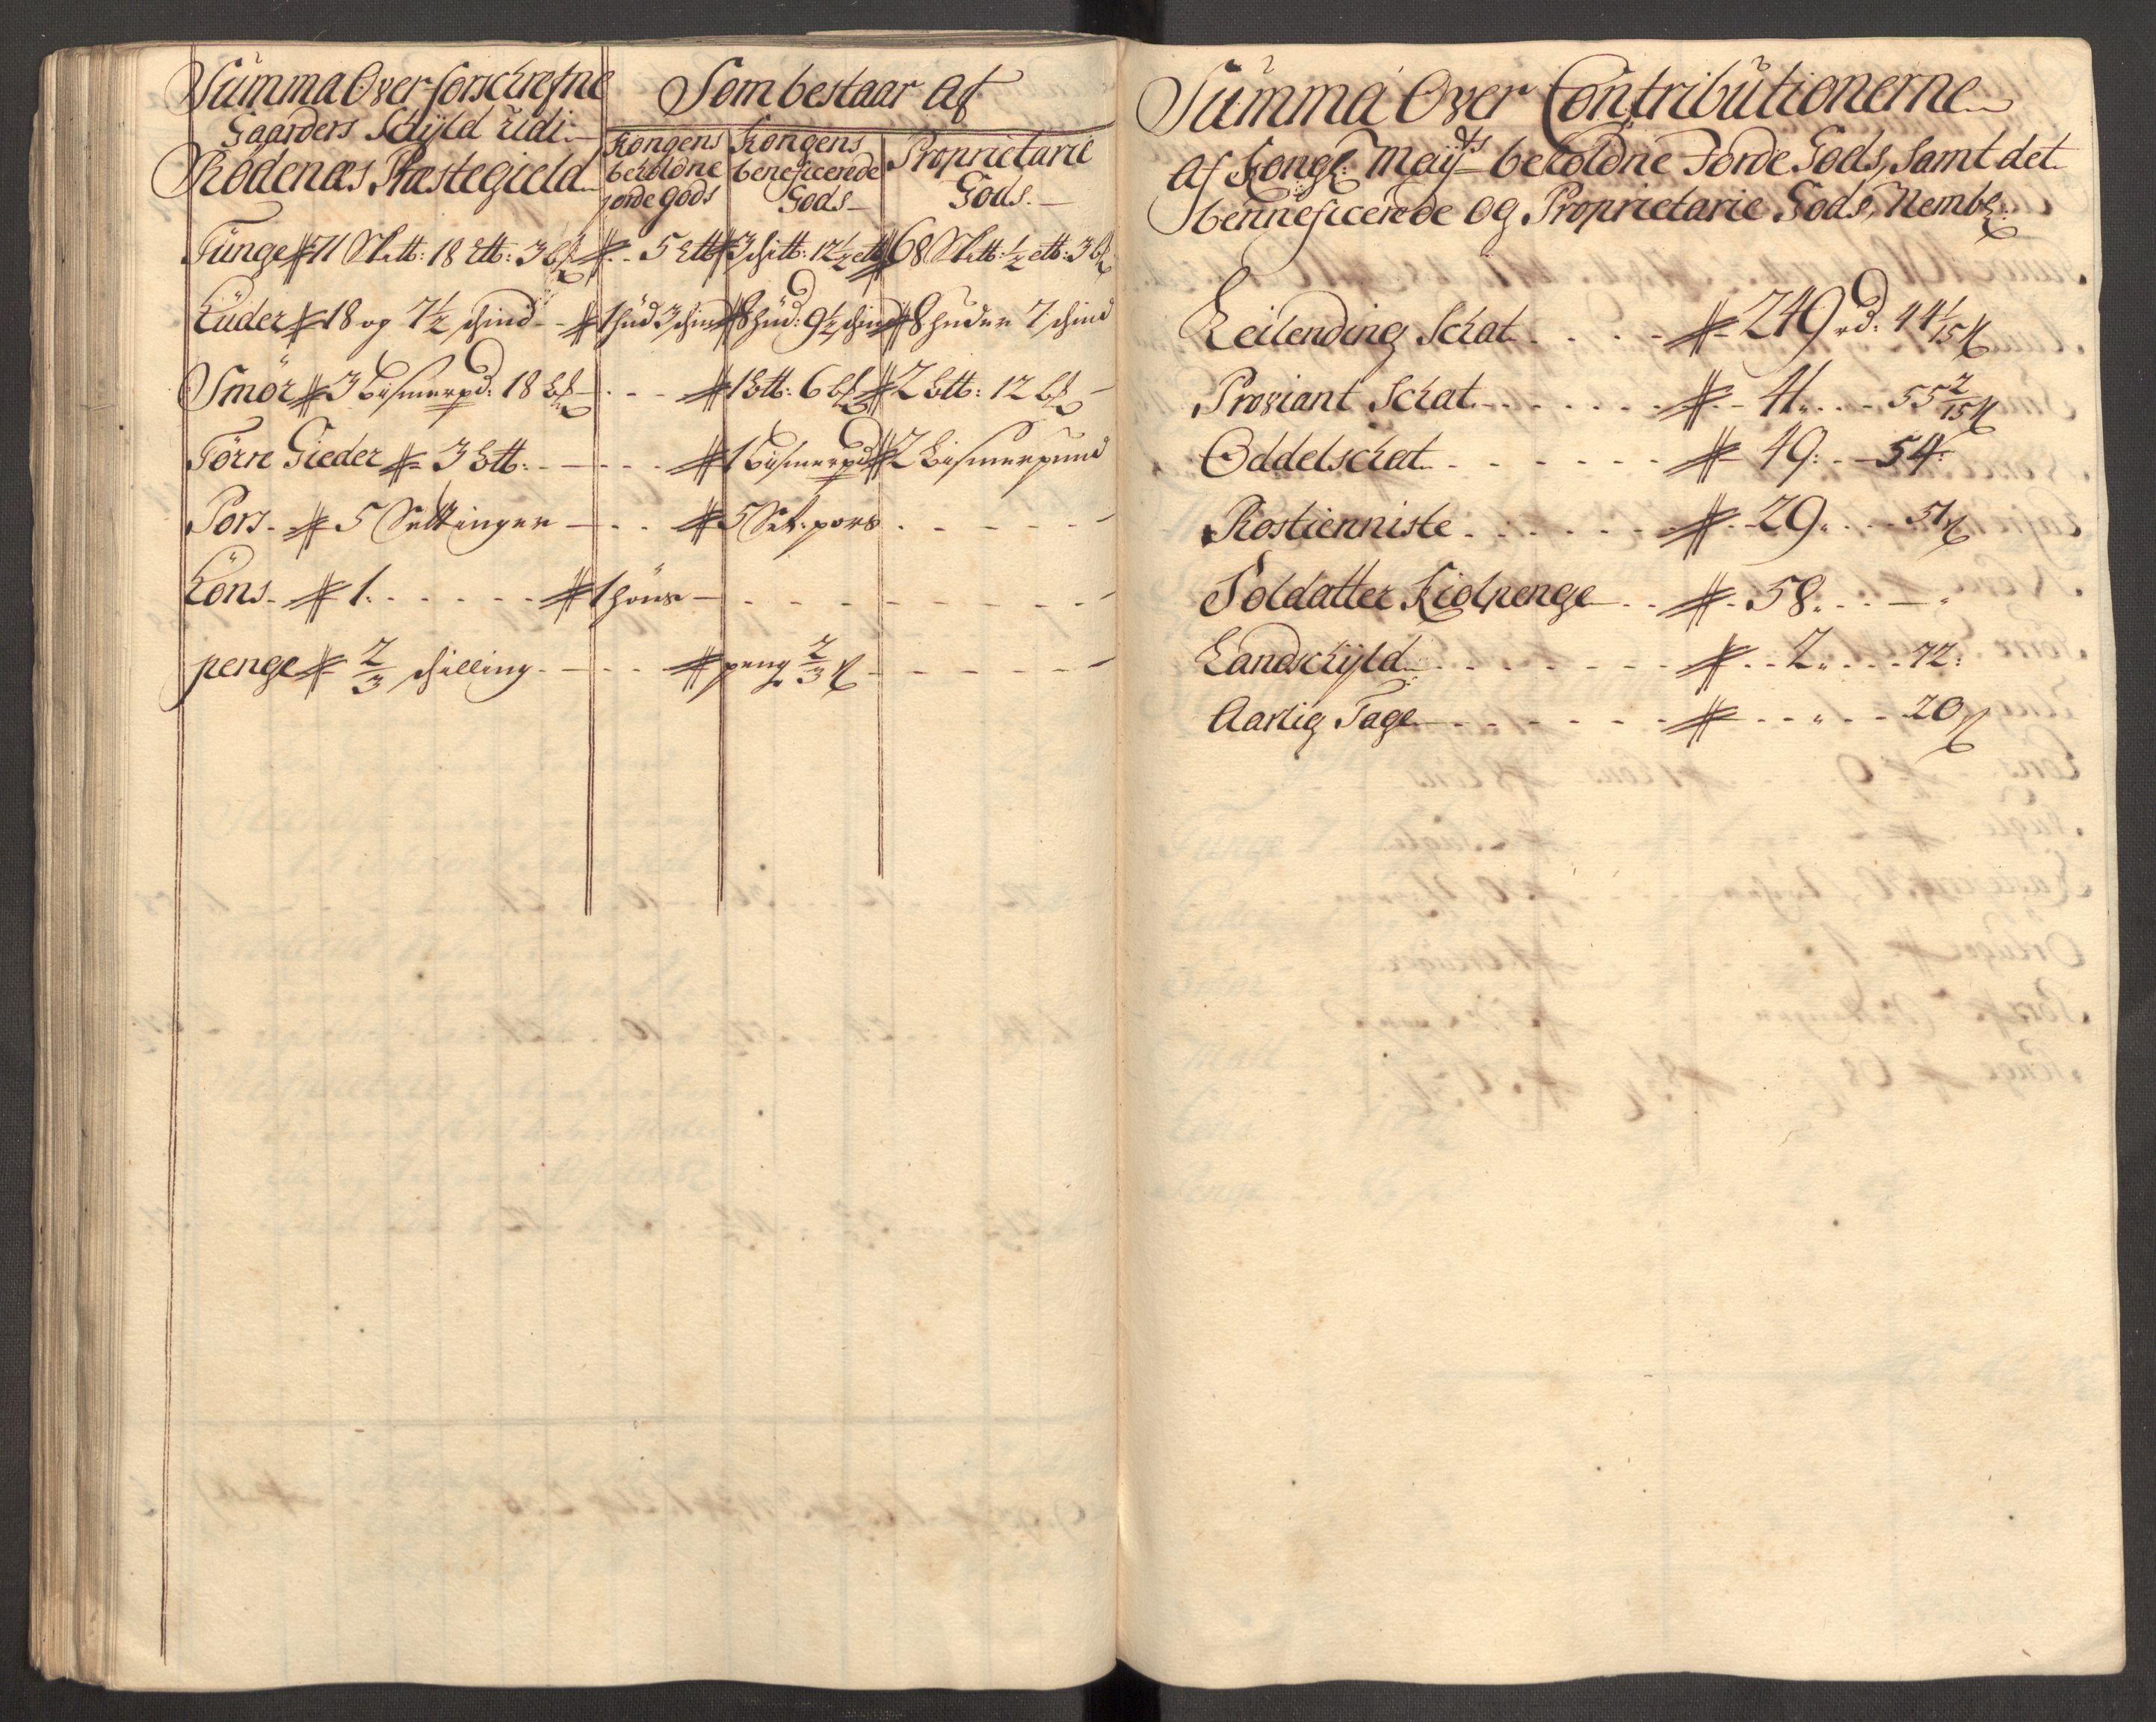 Summa Over forschrefne
Gaarders Schÿld udi
Rødenæs Præstegield
Som bestaar Af
Kongens beholdne jorde gods
Kongens beneficerede Gods
Proprietarie Gods.
Tunge # 71 Sk℔: 18 ℔: 3 # - 5 ℔ # 3 schi℔: 12½ # 68 Sk℔: ½ ℔: 3
Huder # 18 og 7½ schind - # 1 hud 3 schin # 8 hud: 9½ schin # 8 huder 7 schind
Smör # 3 bismerpd: 18 - - - # 1 b℔: 6 # 2 b℔: 12
Törre Gieder # 3 b℔: - - - # 1 bismerpd # 2 bismerpund
Pors - # 5 Settinger - - - # 5 Set: pors - - - -
Höns - # 1 - - - - # 1 höns - - - - -
penge # 2/3 schilling - - - # peng 2/3 - - - -
Summa Over Contributionerne
Af Kongl: Maÿts beholdne Jorde Gods, samt det
benneficerede og Proprietarie Gods, Nembl:
Leilending Schat - - - # 249 rd: 44 1/15
Proviant Schat - - - # - 41 - - 55 2/15
Oddelschat - - - # 49: - 54:
Rostienniste - - - # - 29 - - 51
Soldatter Kiolpenge - - # - 58 - - -
Landschÿld - - - # - 2 - - 72:
Aarlig Tage - - - # - - - 20